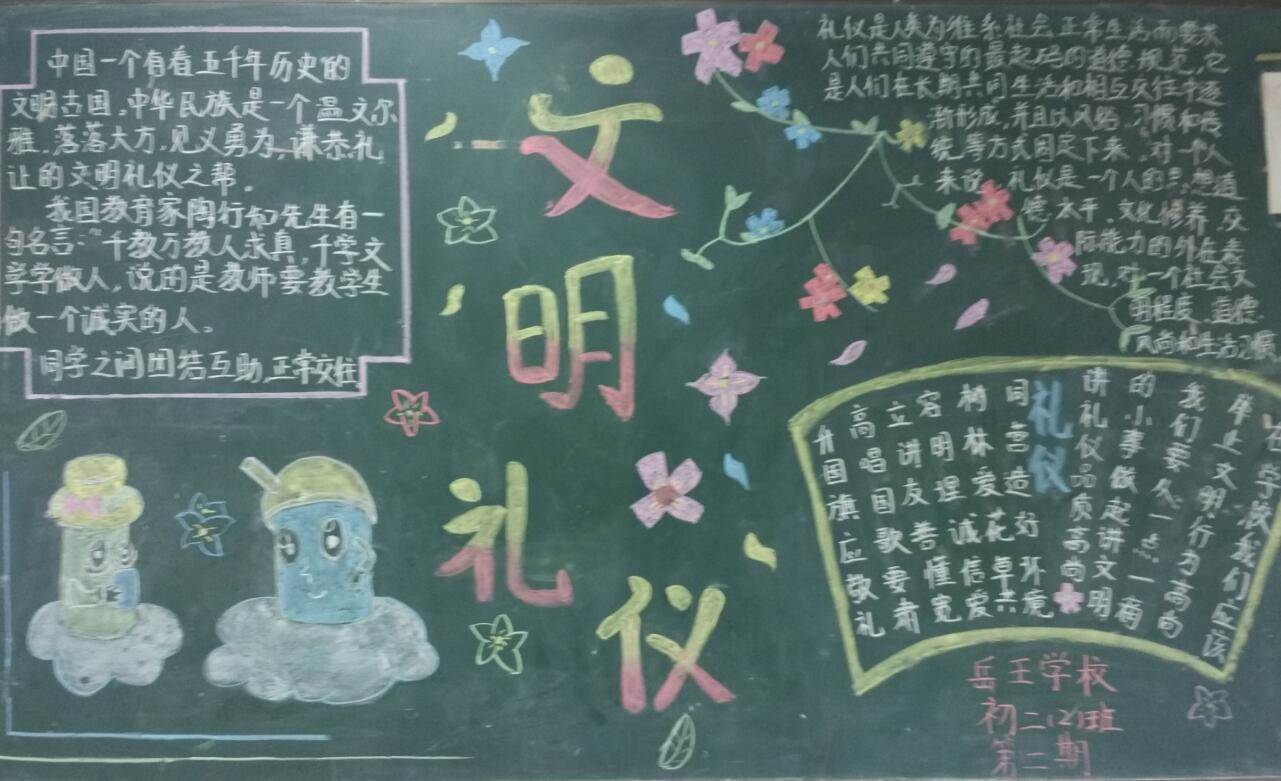 中国一个有着五千年历史的
文明古国，中华民族是一个温文尔
雅，落落大方，见义勇为，谦恭礼
让的文明礼仪之帮。
我国教育家陶行知先生有一
句名言：“千教万教人求真，千学文
学学做人，说的是教师要教学生
做一个诚实的人。
同学之间团结互助，正常交往
文明礼仪
礼仪是人类为维系社会正常生活而要求
人们共同遵守的最起码的道德规范，它
是人们在长期共同生活和相互交往中逐
渐形成，并且以风俗、习惯和传
统等方式固定下来，对一个人
来说，礼仪是一个人的思想道
德水平，文化修养，交
际能力的外在表
现，对一个社会文
明程度、道德
风尚和生活习惯
在学校我们应该
举止文明行为高尚
我们要从一点一滴
的小事做起讲文明
讲礼仪品质高尚
礼仪
同营造好环境
树林爱花草共
容明理诚信爱
立讲友善懂宽
高唱国歌要肃
升国旗应敬礼
岳王学校
初二(2)班
第二期